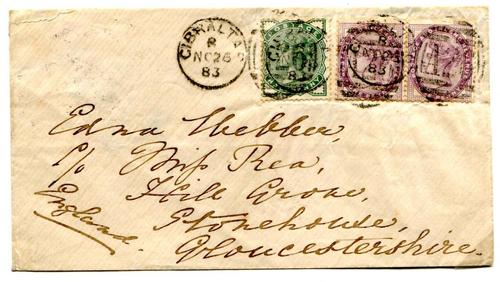 GIBRALTAR
B
NO 26
83
Edna Webber,
C/o Miss Rea,
Hill Grove,
Stonehouse,
Gloucestershire.
England.